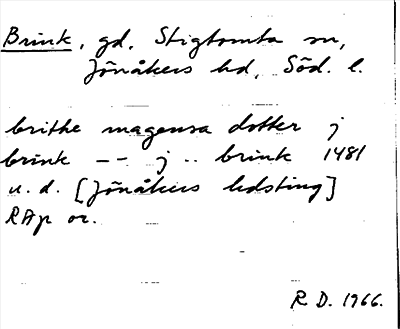 Brink, gd, Stigtomta sn,
Jönåkers hd, Söd. l.
brithe magensa dotter j
brink -- j .. brink 1481
u. d. [Jönåkers hdsting]
RAp or.
R D. 1966.